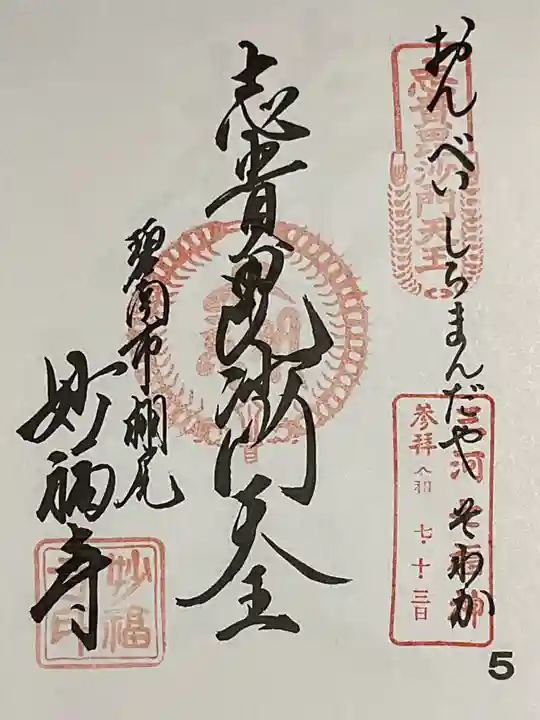 おんべいしらまんだやそわか
志貴毘沙門天王
参拝 令和 七・十・三日
志貴毘沙門天王
碧南市棚尾
妙福寺
妙福寺印
5